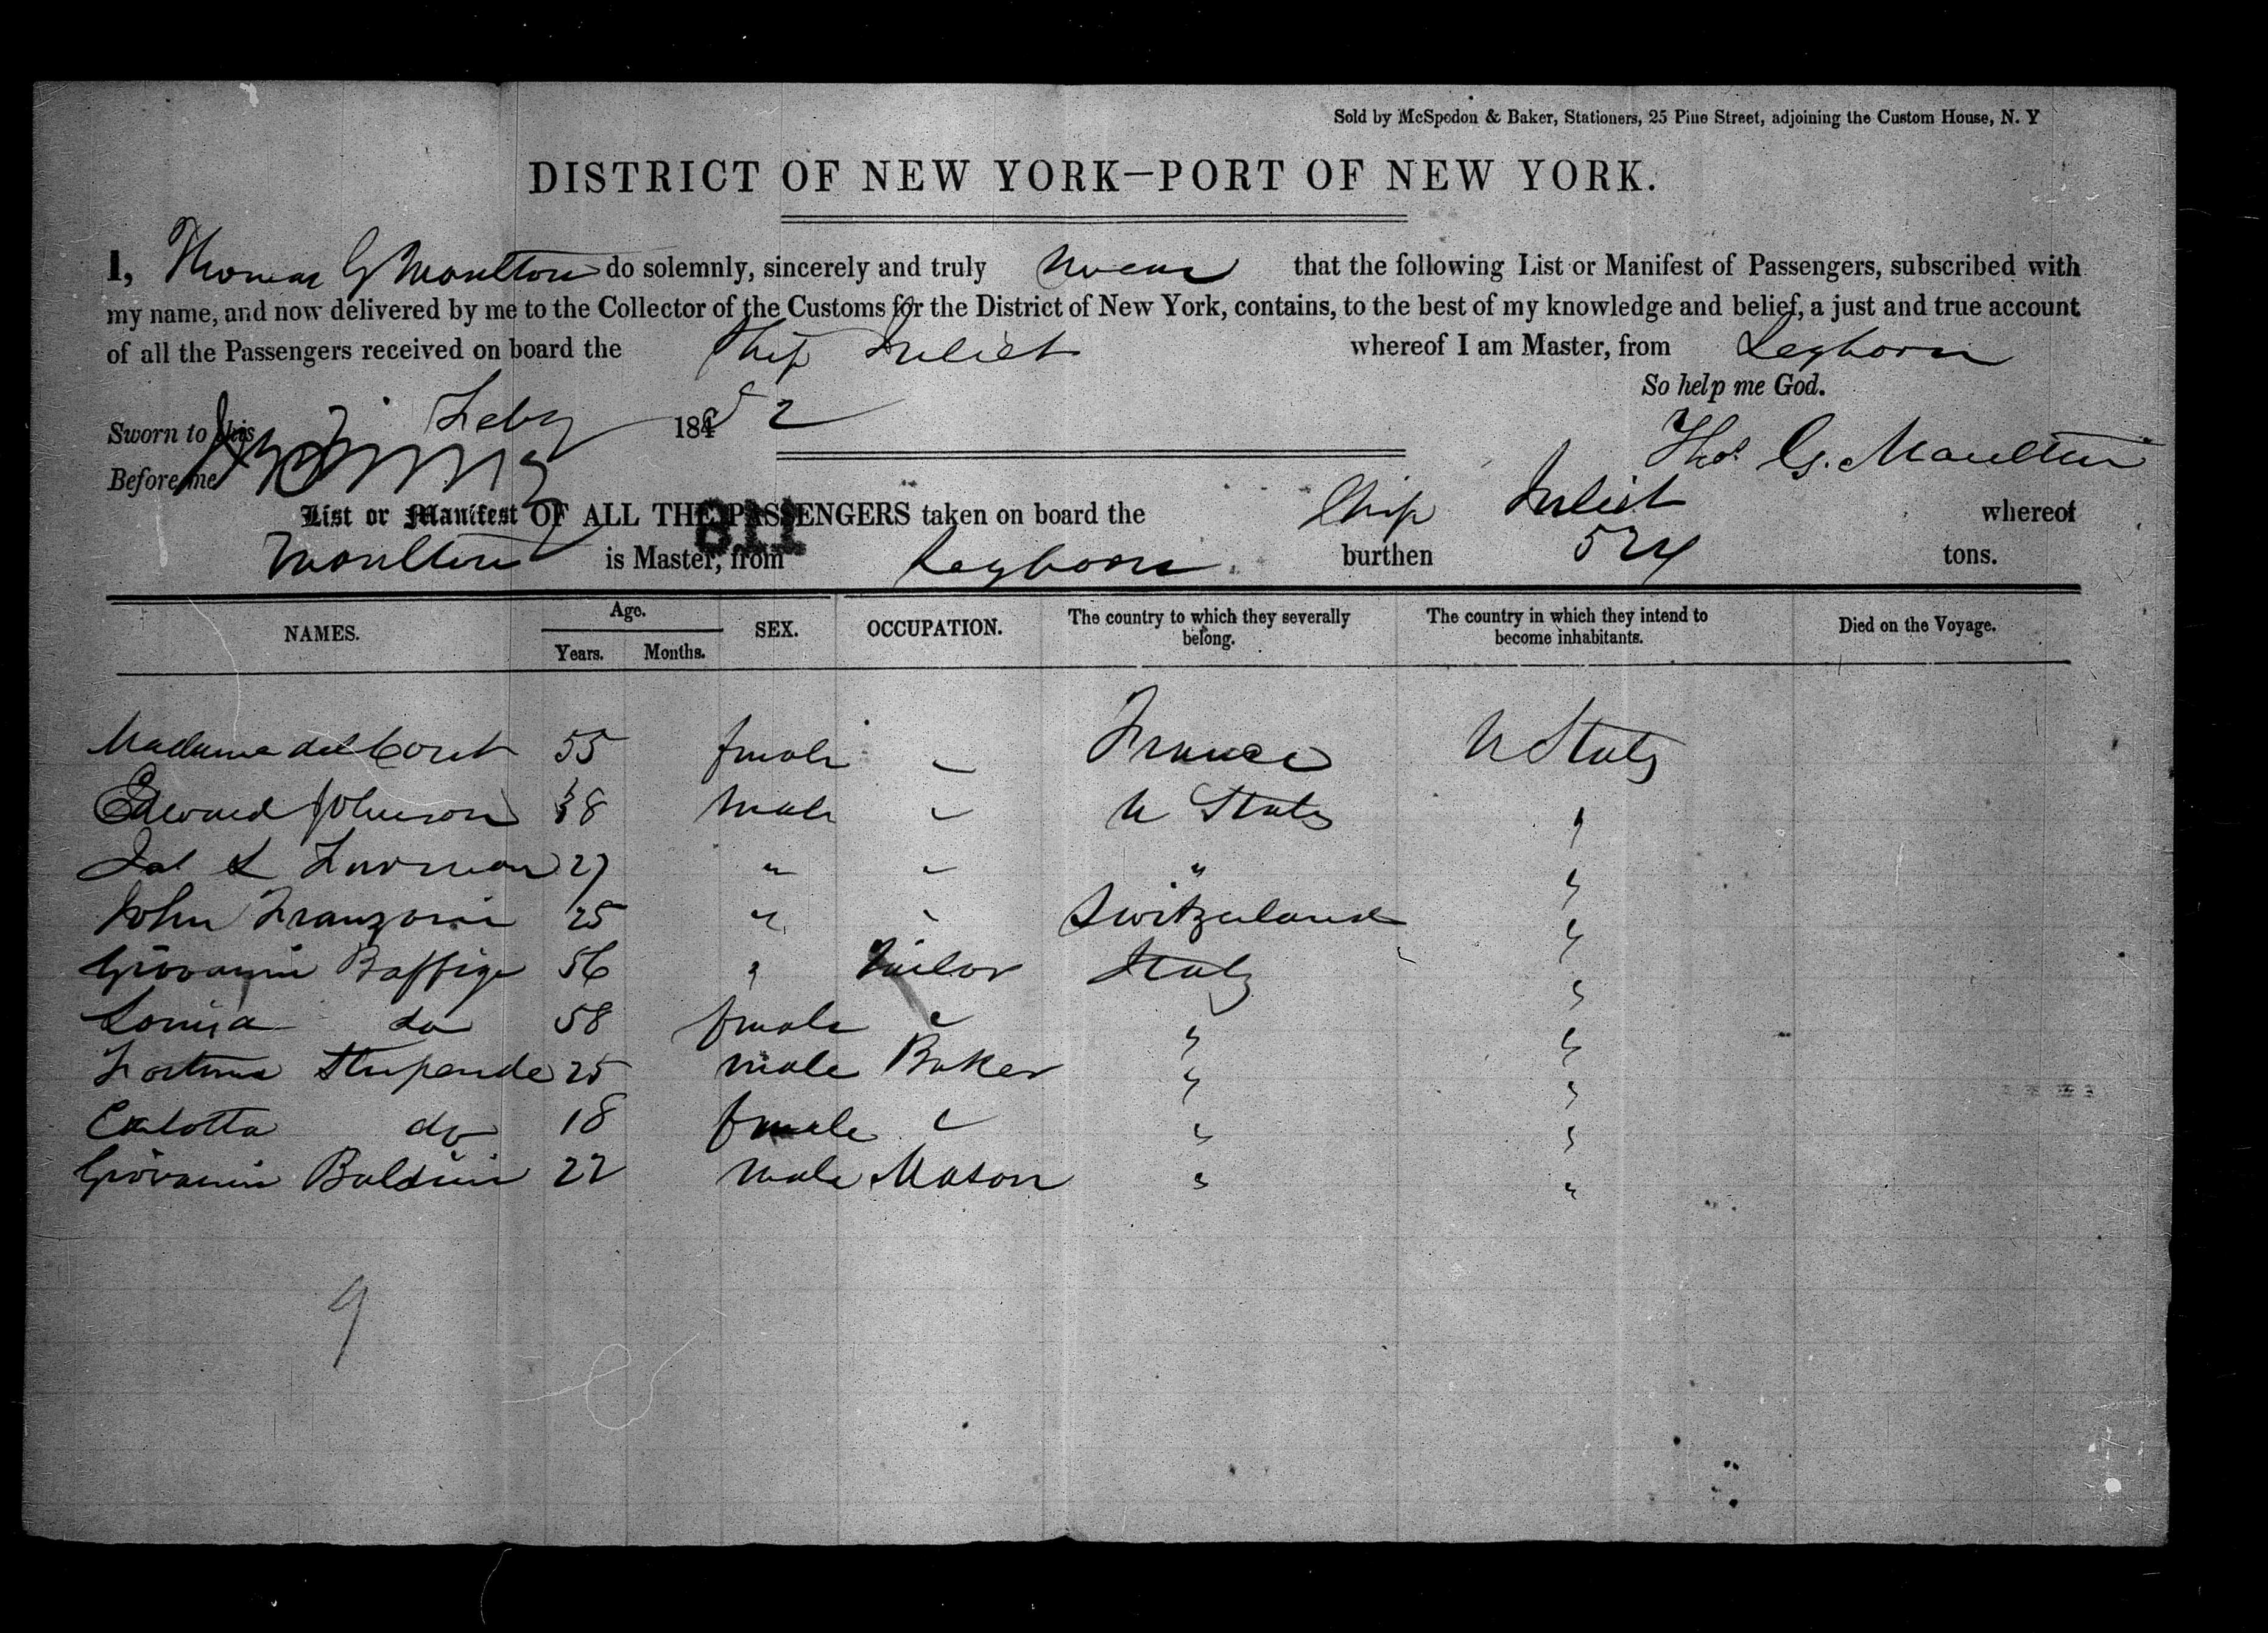 Sold by McSpedon & Baker, Stationers, 25 Pine Street, adjoining the Custom House, N. Y
DISTRICT OF NEW YORK—PORT OF NEW YORK.
I, Thomas G Moulton do solemnly, sincerely and truly swear that the following List or Manifest of Passengers, subscribed with
my name, and now delivered by me to the Collector of the Customs for the District of New York, contains, to the best of my knowledge and belief, a just and true account
of all the Passengers received on board the Ship Juliet whereof I am Master, from Leghorn
So help me God.
Sworn to this Feby 1852
Thos G. Moulton
Before me
List or Manifest OF ALL THE PASSENGERS taken on board the Ship Juliet whereof
811
Moulton is Master, from Leghorn burthen 524 tons.
NAMES. Age. Years. Months. SEX. OCCUPATION. The country to which they severally belong. The country in which they intend to become inhabitants. Died on the Voyage.
Madame del 55 female France U States
Edward Johnson 38 male U States "
27 " "  "
John Franzoni 25 " Switzerland "
Giovanni Baffigo 56 " Tailor Italy "
Louisa do 58 female " "
Stupende 25 male Baker " "
Calotta do 18 female " "
Giovanni Baldini 22 male Mason " "
9